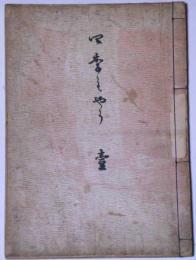 四季もやう 壹